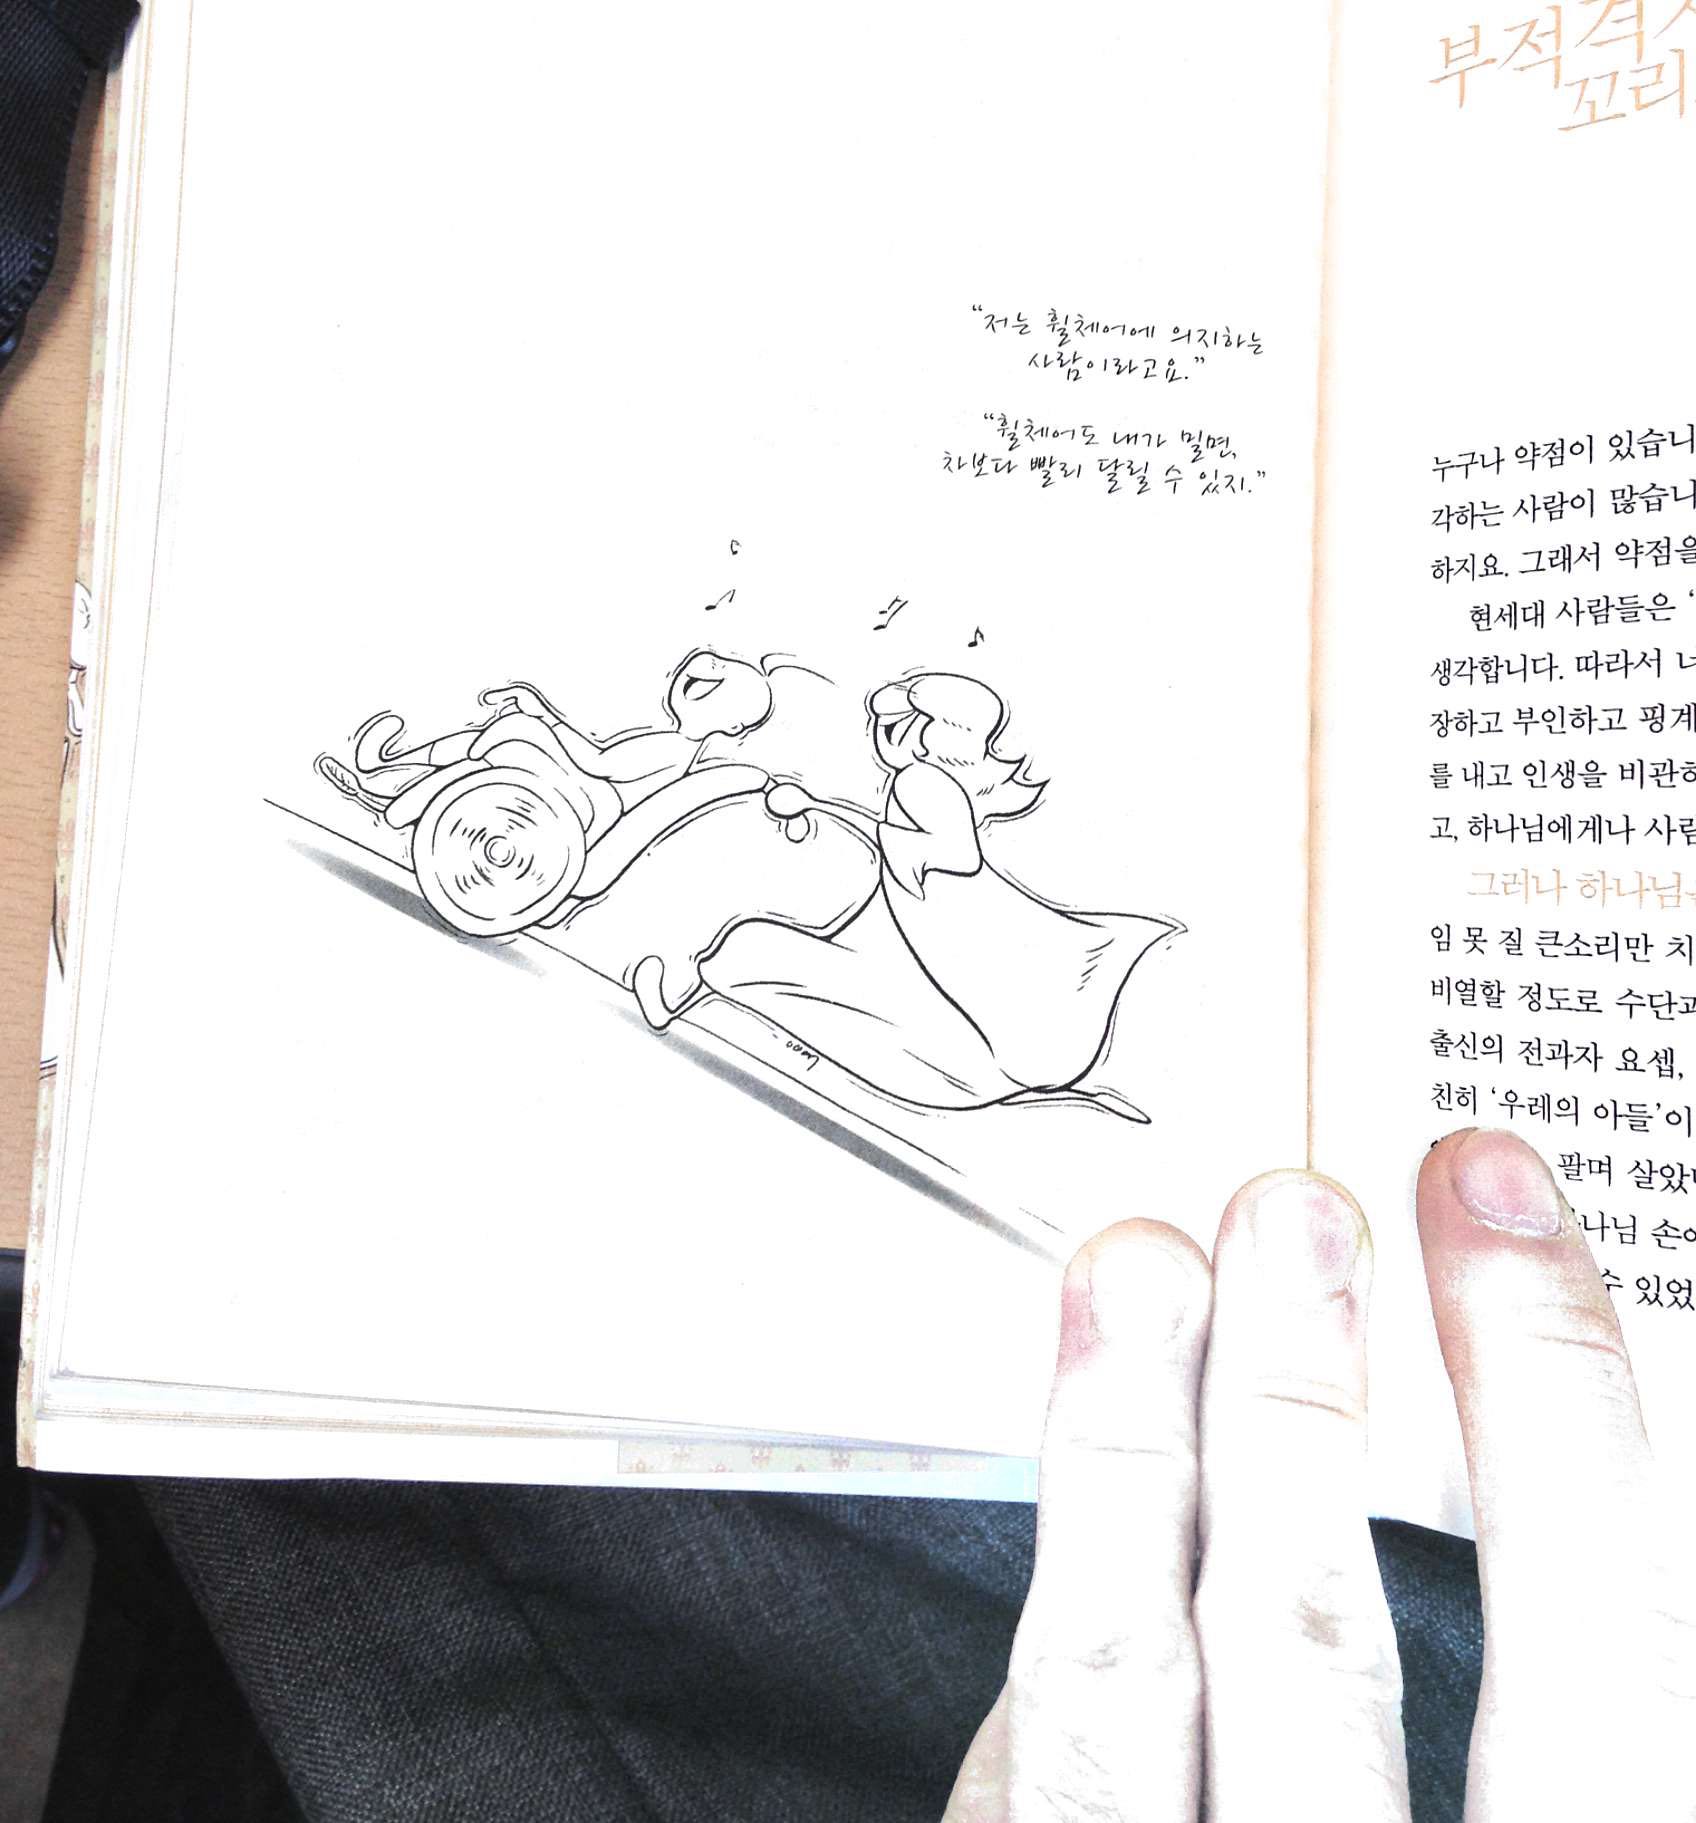 "저는 휠체어에 의지하는
사람이라고요."
"휠체어도 내가 밀면,
차보다 빨리 달릴 수 있지."
부적격
꼬리
누구나 약점이 있습니
각하는 사람이 많습니
하지요. 그래서 약점을
현세대 사람들은 ‘
생각합니다. 따라서 너
장하고 부인하고 핑계
를 내고 인생을 비관하
고, 하나님에게나 사람
그러나 하나님
임 못 질 큰소리만 치
비열할 정도로 수단과
출신의 전과자 요셉,
친히 ‘우레의 아들’이
팔며 살았
나님 손에
수 있었